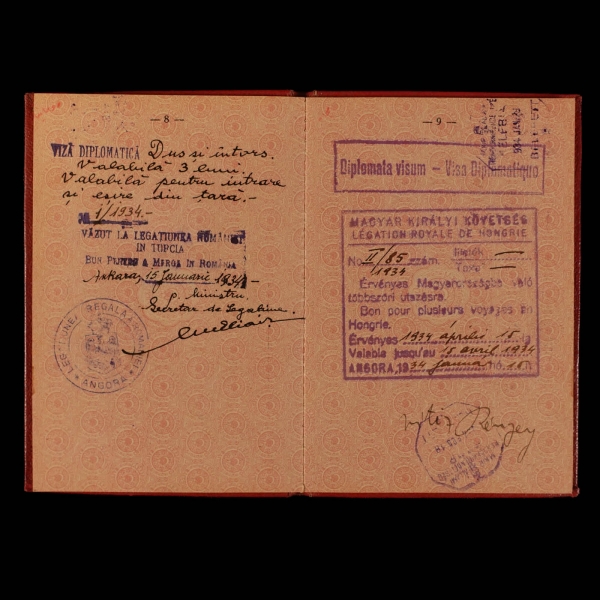 — 8 —
VIZĂ DIPLOMATICĂ Dus si intors.
Valabilă 3 luni.
Valabilă pentru intrare
și eșire din țara.-
No 1/1934.-
VĂZUT LA LEGAȚIUNEA ROMÂNIEI
IN TURCIA
BUN PENTRU A MERGE ÎN ROMÂNIA
Ankara, 15 Januarie 1934
p. Ministru,
Secretar de Legatiune
LEGAȚIUNEA REGALĂ A ROMÂNIEI
ANGORA
— 9 —
Diplomata visum – Visa Diplomatique
MAGYAR KIRÁLYI KÖVETSÉG
LÉGATION ROYALE DE HONGRIE
No II/85 szám. Illeték —
1934 Taxe —
Érvényes Magyarországba való
többszöri utazásra.
Bon pour plusieurs voyages en
Hongrie.
Érvényes 1934 április 15 ig
Valable jusqu'au 15 avril 1934
ANGORA, 1934 január hó 15 n.